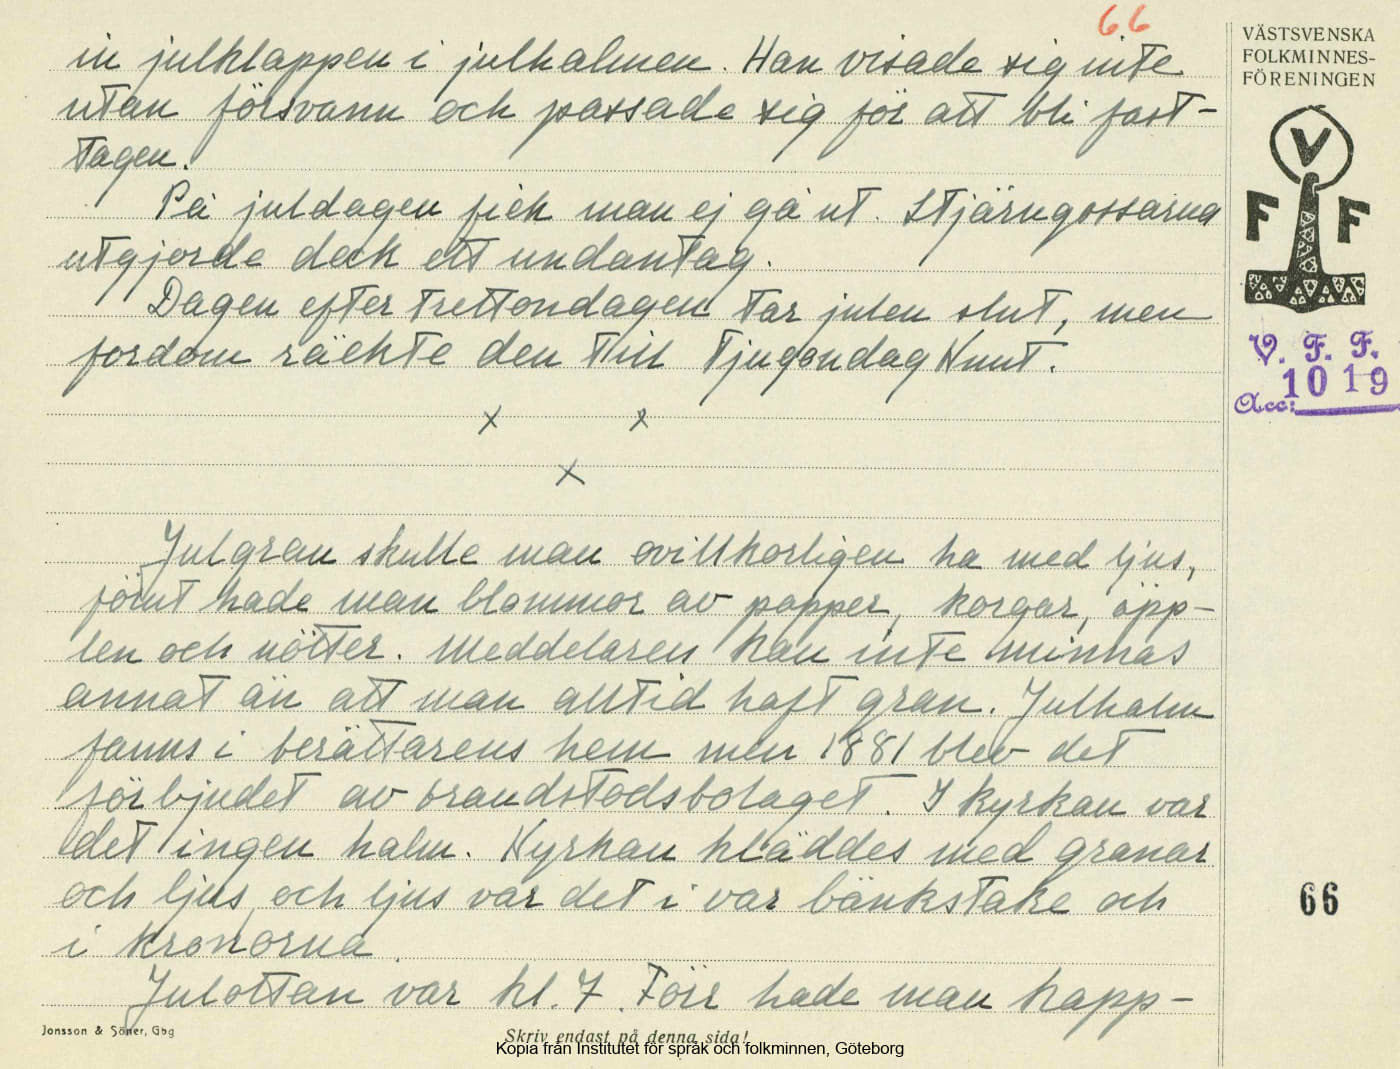 66
in julklappen i julhalmen. Han visade sig inte
utan försvann och passade sig för att bli fast-
tagen.
På juldagen fick man ej gå ut. Stjärngossarna
utgjorde dock ett undantag.
Dagen efter trettondagen tar julen slut, men
fordom räckte den till tjugondag Knut.
x x
x
Julgran skulle man ovillkorligen ha med ljus,
förut hade man blommor av papper, korgar, äpp-
len och nötter. Meddelaren kan inte minnas
annat än att man alltid haft gran. Julhalm
fanns i berättarens hem men 1881 blev det
förbjudet av brandstodsbolaget. I kyrkan var
det ingen halm. Kyrkan kläddes med granar
och ljus, och ljus var det i var bänkstake och
i kronorna.
Julottan var kl. 7. Förr hade man kapp-
Jonsson & Söner, Gbg
Skriv endast på denna sida!
Kopia från Institutet för språk och folkminnen, Göteborg
VÄSTSVENSKA
FOLKMINNES-
FÖRENINGEN
V
F F
V. F. F.
1019
Acc:
66